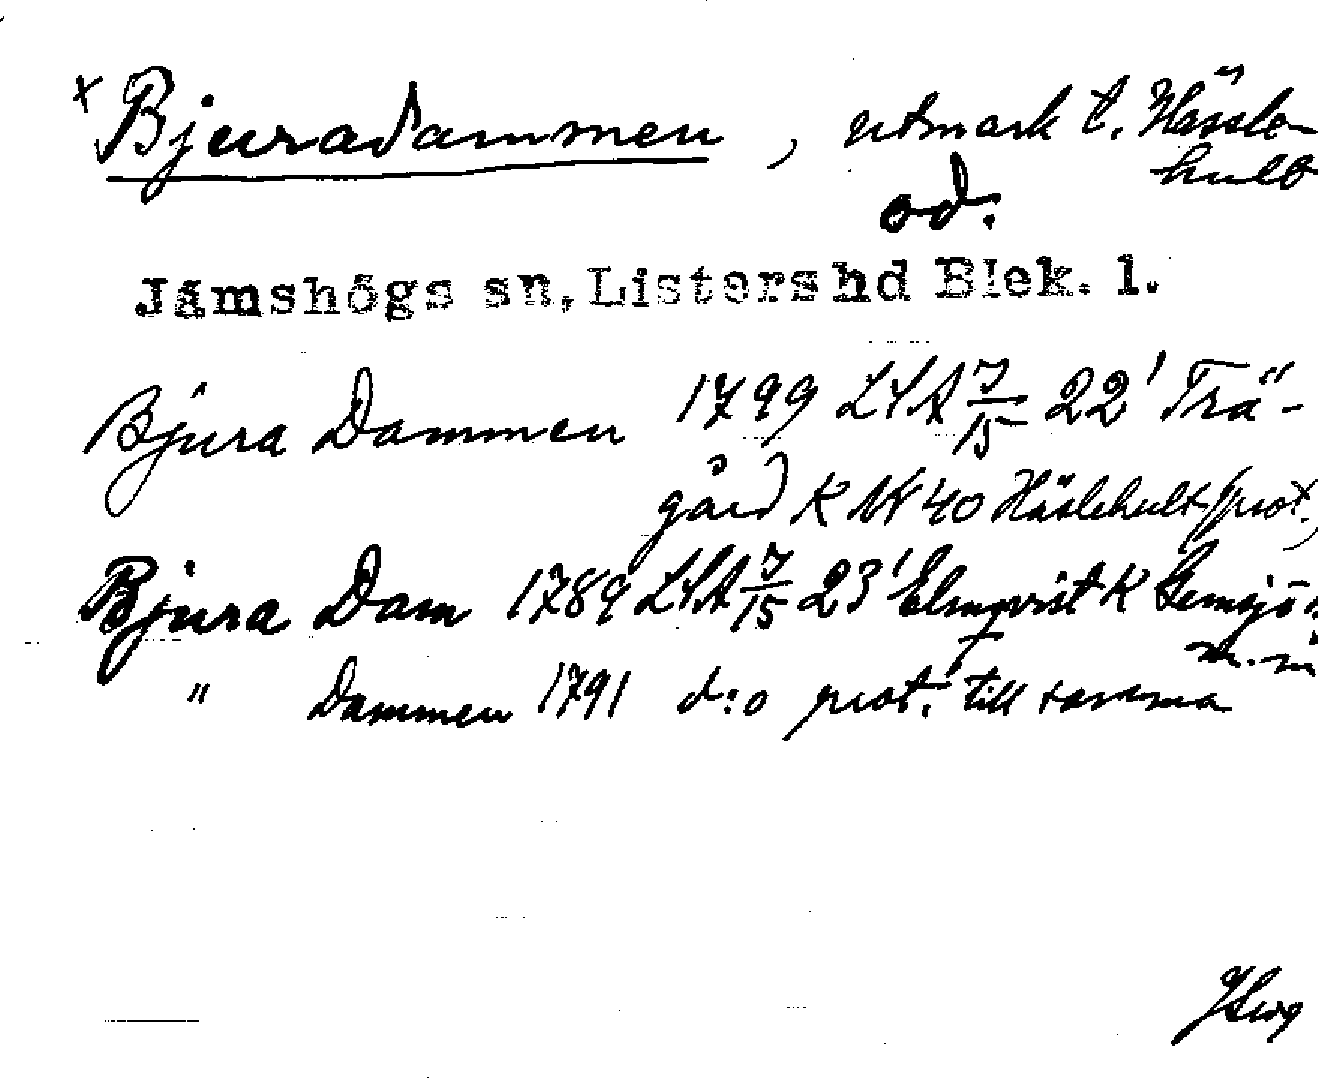 x Bjuradammen, utmark t. Hässle-
hult
od.
Jämshögs sn, Listers hd Blek. l.
Bjura Dammen 1799 LSA J/15 22' Trä-
gård K Nr 40 Häslehult (prot.,
Bjura Dam 1789 LSA J/15 23' Elmqvist K Gemsjön
m. m
" Dammen 1791 d:o prot. till samma